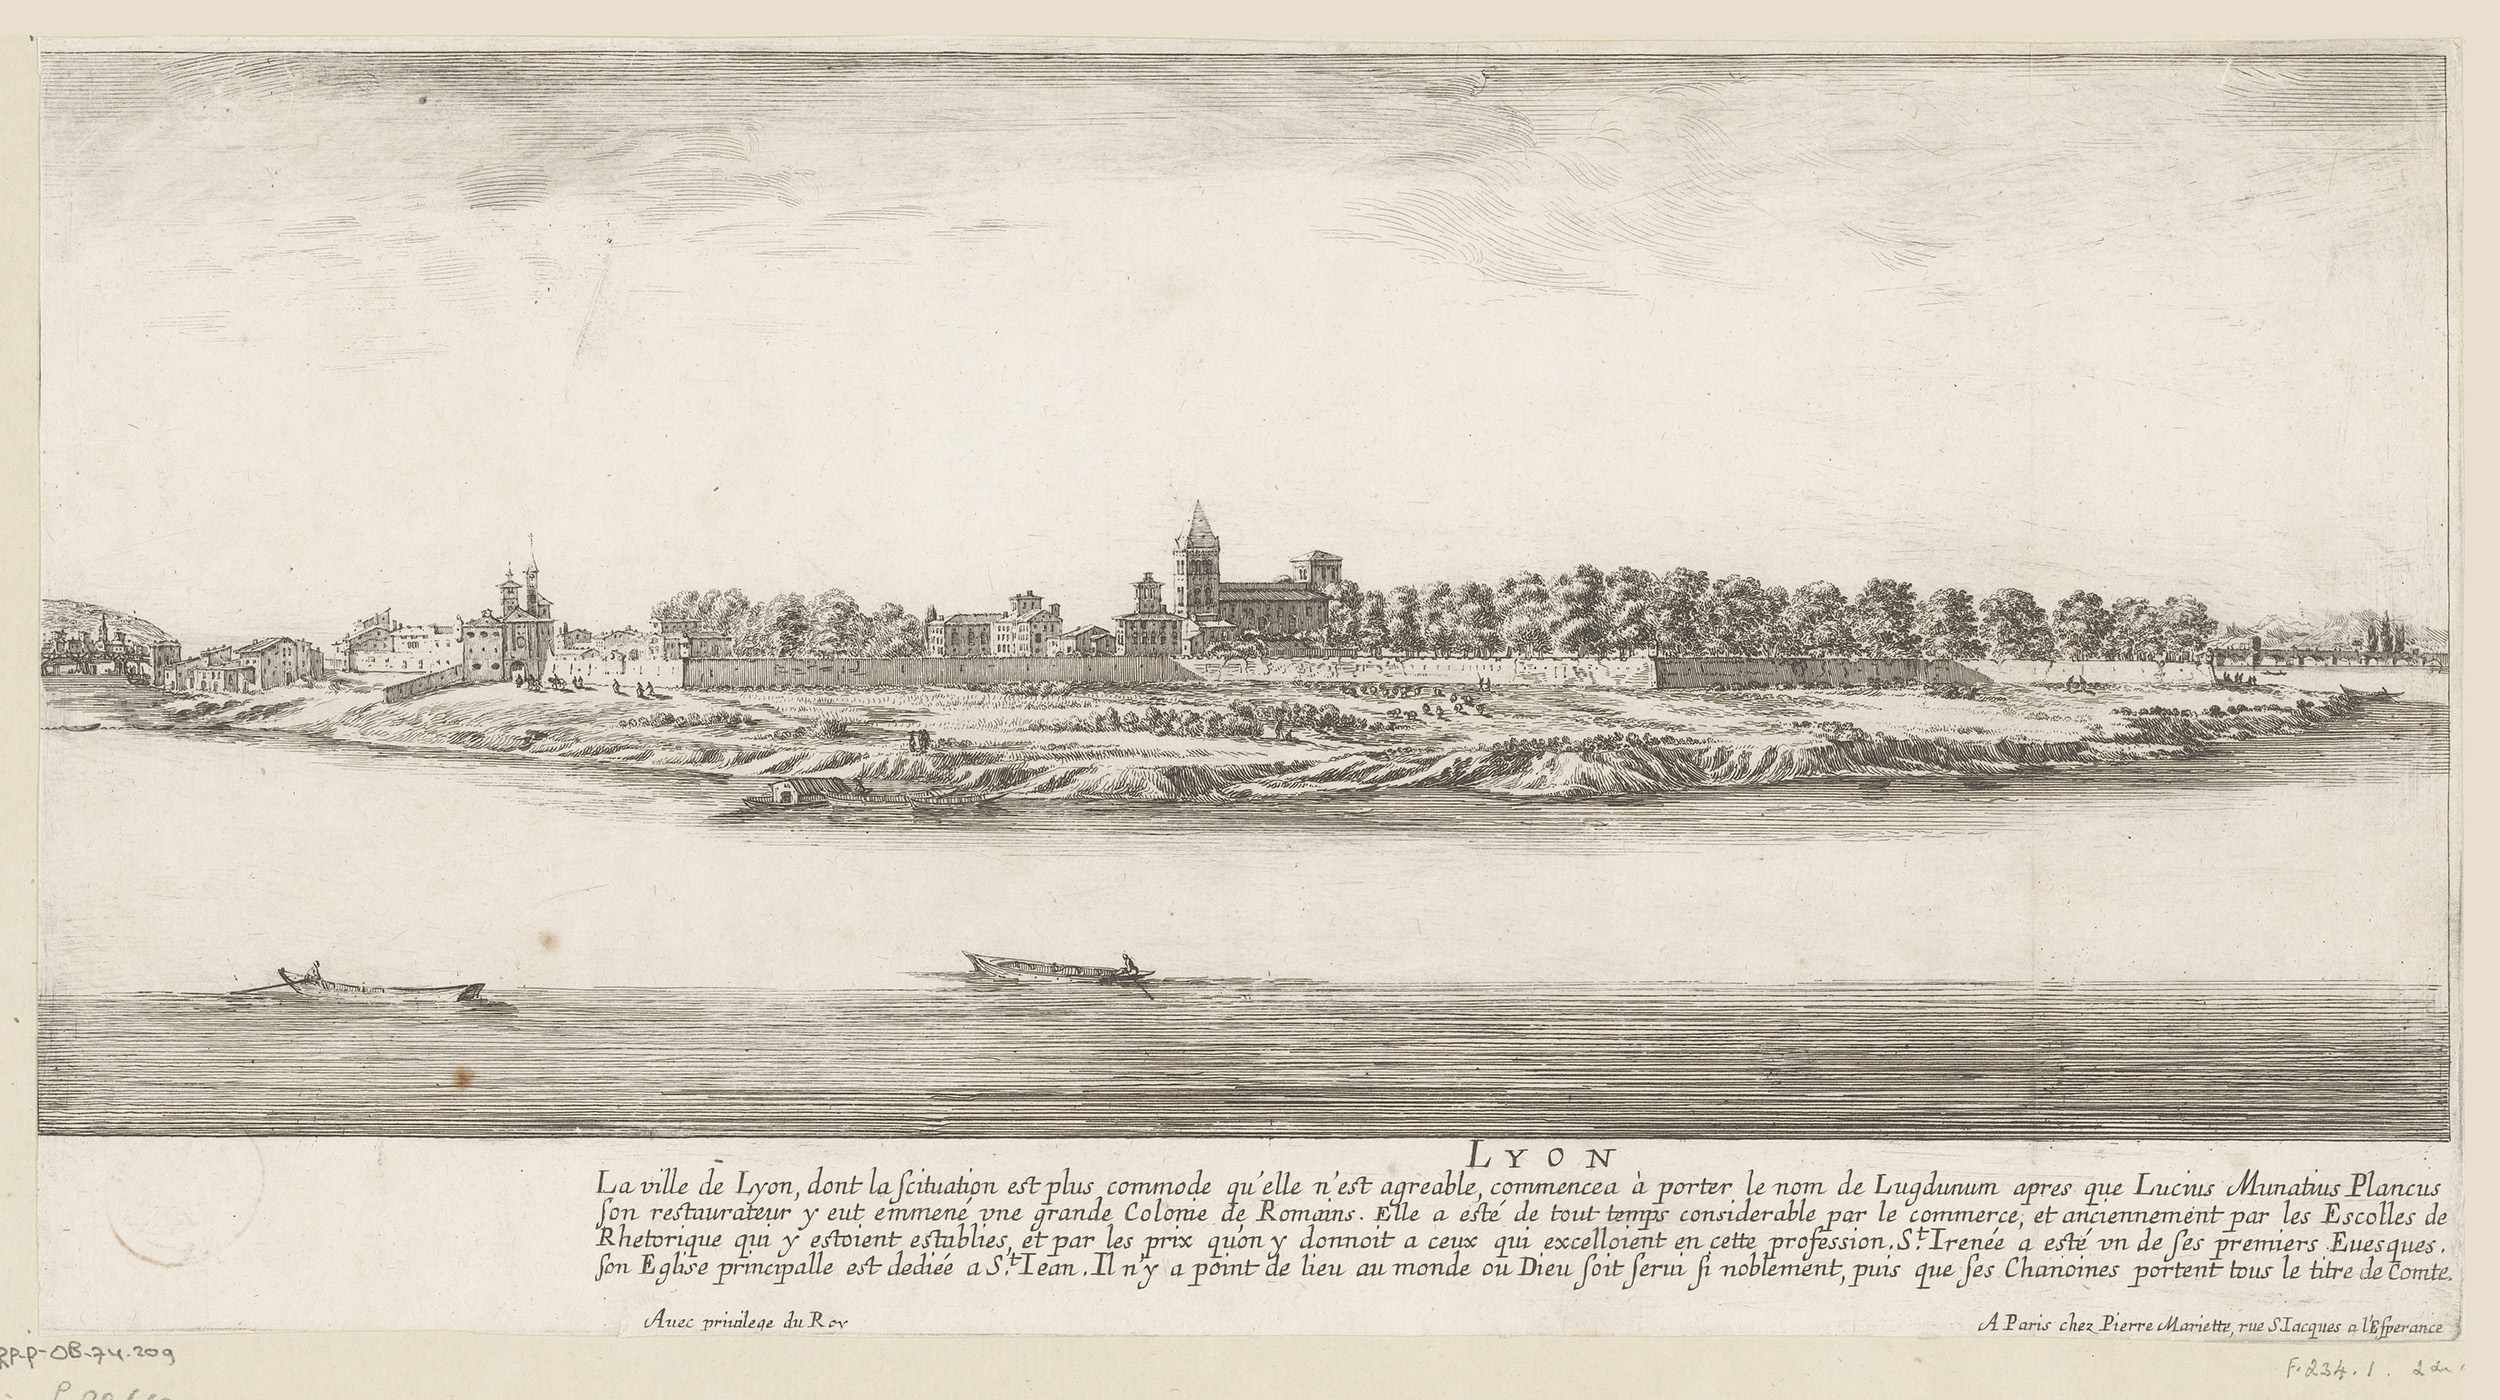 LYON
La ville de Lyon, dont la ſcituation est plus commode qu'elle n'est agreable, commencea à porter le nom de Lugdunum apres que Lucius Munatius Plancus
ſon restaurateur y eut emmené vne grande Colonie de Romains. Elle a esté de tout temps considerable par le commerce, et anciennement par les Escolles de
Rhetorique qui y estoient establies, et par les prix qu'on y donnoit a ceux qui excelloient en cette profession. St. Irenée a esté vn de ſes premiers Euesques.
ſon Eglise principalle est dediée a St. Iean. Il n'y a point de lieu au monde ou Dieu ſoit ſerui ſi noblement, puis que ſes Chanoines portent tous le titre de Comte.
Auec priuilege du Roy
A Paris chez Pierre Mariette, rue S Iacques a l'Eſperance
RP-P-OB-74.209
F. 234. 1.